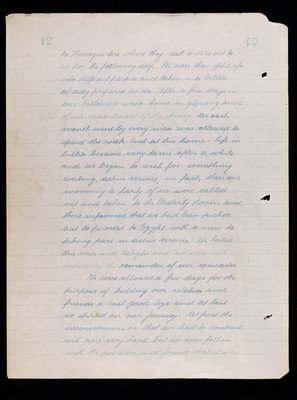 12 12
to Headquarters where they read orders out to
us for the following day. We were then split up
into different parties and taken into billets
already prepared for us. After a few days in
our billets we wrote home in glowing terms
of our of the Army. As each
month went by every man was allowed to
spend the week end at his home. Life in
billets became very tame after a while
and we began to wish for something
exciting, active service in fact, then one
morning a party of us were called
out and taken to the Orderly Room and
there informed that we had been picked
out to proceed to Egypt with a view to
taking part in active service. We hailed
this news with delight and we were
by the remainder of our comrades
We were allowed a few days for the
purpose of bidding our relatives and
friends a last good-bye and at last
we started on our journey. At first the
inconveniences that we had to contend
with were very hard but we soon fell in
with the position and found that